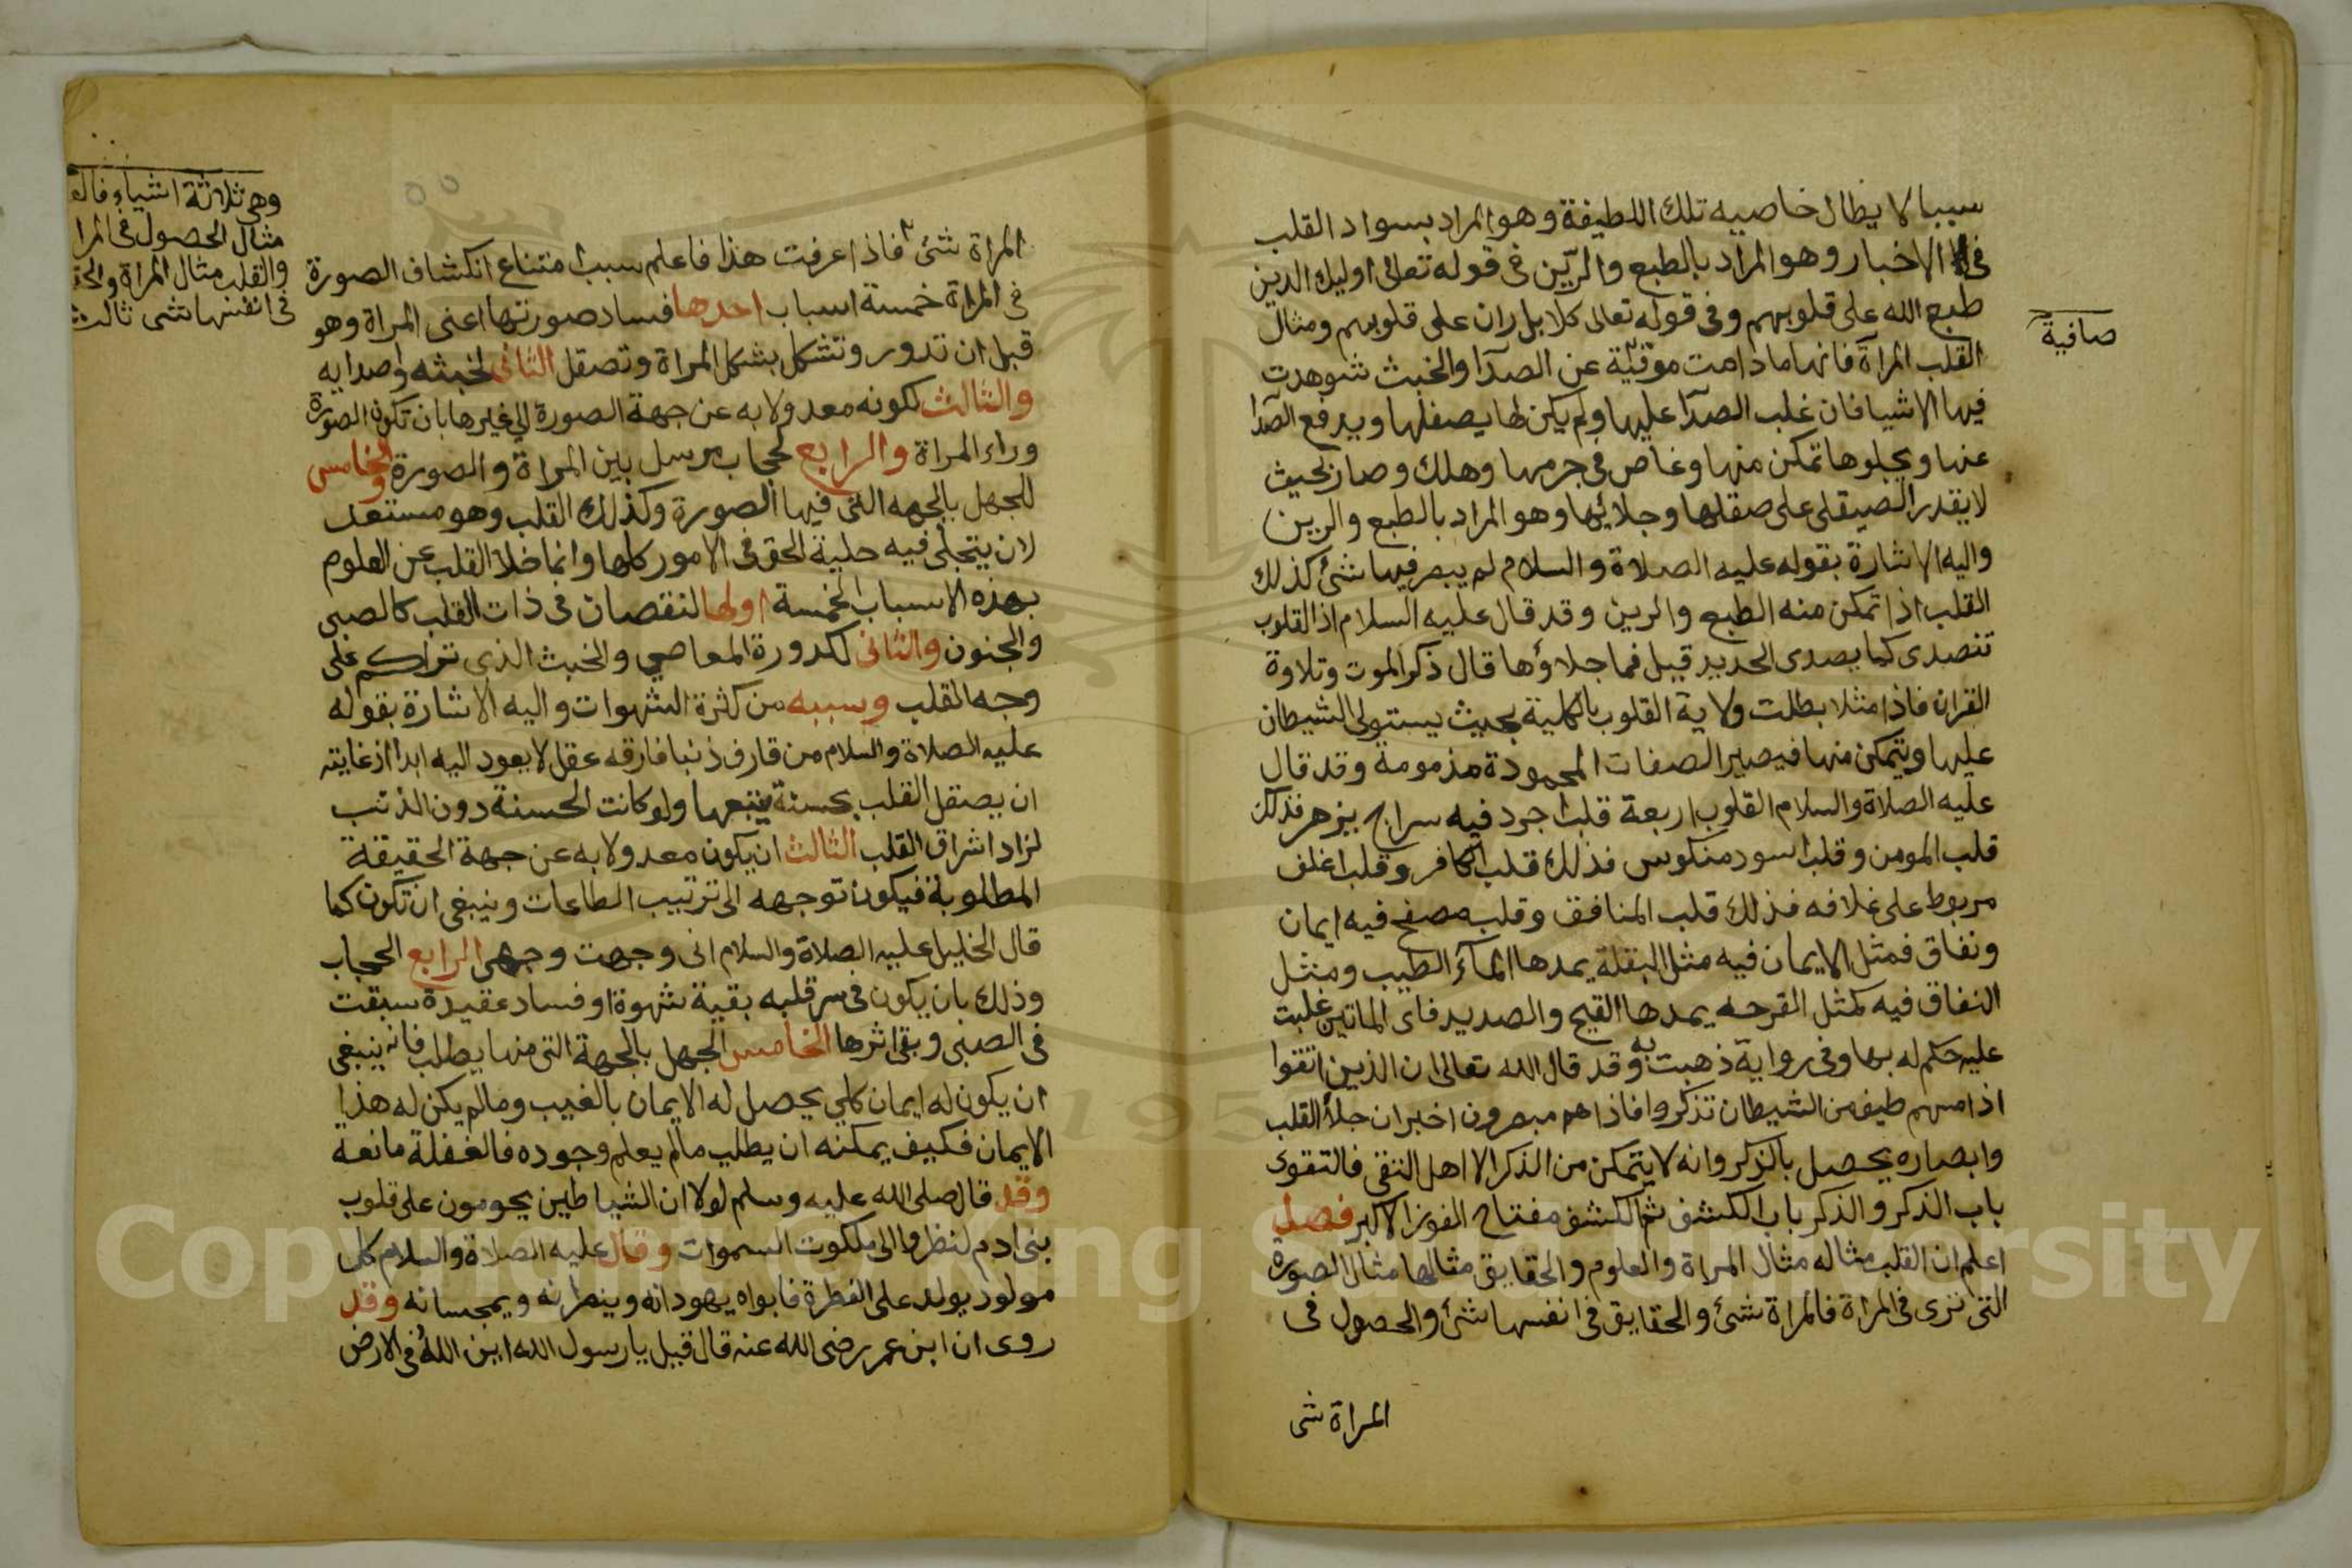 سببا لا يطال خاصيه تلك اللطيفة وهو المراد بسواد القلب
في الاخبار وهو المراد بالطبع والرّين في قوله تعالى اوليك الذين
طبع الله على قلوبهم وفي قوله تعالى كلا بل ران على قلوبهم ومثال
القلب المرآة فانها ما دامت موقية عن الصدآ والخبث شوهدت
صافية
فيها الاشيا فان غلب الصدآ عليها ولم يكن لها يصقلها ويدفع الصدا
عنها ويجلوها تمكن منها وغاص في جرمها وهلك وصار بحيث
لا يقدر الصيقلي على صقلها وجلائها وهو المراد بالطبع والرين
واليه الاشارة بقوله عليه الصلاة والسلام لم يبصر فيها شئ كذلك
القلب اذا تمكن منه الطبع والرين وقد قال عليه السلام اذ القلوب
تتصدى كما يصدى الحديد قيل فما جلاؤها قال ذكر الموت وتلاوة
القران فاذا مثلا بطلت ولاية القلوب بالكلية بحيث يستولي الشيطان
عليها ويتمكن منها فيصير الصفات المحمودة مذمومة وقد قال
عليه الصلاة والسلام القلوب اربعة قلب اجرد فيه سراج يزهر فذلك
قلب المومن وقلب اسود منكوس فذلك قلب الكافر وقلب اغلف
مربوط على غلافه فذلك قلب المنافق وقلب مصفح فيه ايمان
ونفاق فمثل الايمان فيه مثل البقلة يمدها المآء الطيب ومثل
النفاق فيه كمثل القرحه يمدها القيح والصديد فاى الماتين غلبت
عليه حكم له بها وفي رواية ذهبت به وقد قال الله تعالى ان الذين اتقوا
اذا مسهم طيف من الشيطان تذكروا فاذا هم مبصرون اخبر ان جلأ القلب
وابصاره يحصل بالذكر وانه لا يتمكن من الذكر الا اهل التقى فالتقوى
باب الذكر والذكر باب الكشف ثم الكشف مفتاح الفوز الاكبر فصل
اعلم ان القلب مثاله مثال المراة والعلوم والحقايق مثالها مثال الصورة
التي ترى في المراة فالمراة شئ والحقايق في انفسها شئ والحصول في
المراة شى
المراة شئ فاذا عرفت هذا فاعلم سبب امتناع انكشاف الصورة
وهي ثلاثة اشياء فان
مثال الحصول في المرا
والقلب مثال المراة والحق
في انفسها شى ثالث
في المراة خمسة اسباب احدها فساد صورتها اعني المراة وهو
قبل ان تدور وتشكل بشكل المراة وتصقل الثاني لخبثه واصدايه
والثالث لكونه معدولا به عن جهة الصورة الى غيرها بان تكون الصورة
وراء المراة والرابع لحجاب مرسل بين المراة والصورة والخامس
للجهل بالجهه التي فيها الصورة وكذلك القلب وهو مستعد
لان يتجلى فيه حلية الحق في الامور كلها وانما خلا القلب عن العلوم
بهذه الاسباب الخمسة اولها لنقصان في ذات القلب كالصبي
والجنون والثاني لكدورة المعاصي والخبث الذي تراكم على
وجه القلب وسببه من كثرة الشهوات واليه الاشارة بقوله
عليه الصلاة والسلام من قارف ذنبا فارقه عقل لا يعود اليه ابدا اذ غايته
ان يصقل القلب بحسنة يتبعها ولو كانت الحسنة دون الذنب
لزاد اشراق القلب الثالث ان يكون معدولا به عن جهة الحقيقة
المطلوبة فيكون توجهه الى ترتيب الطاعات وينبغي ان تكون كما
قال الخليل عليه الصلاة والسلام اني وجهت وجهي الرابع الحجاب
وذلك بان يكون في سر قلبه بقية شهوة او فساد عقيدة سبقت
في الصبى وبقي اثرها الخامس الجهل بالجهة التي منها يطلب فانه ينبغي
ان يكون له ايمان كلي يحصل له الايمان بالغيب وما لم يكن له هذا
الايمان فكيف يمكنه ان يطلب ما لم يعلم وجوده فالغفلة مانعة
وقد قال صلى الله عليه وسلم لولا ان الشياطين يحومون على قلوب
بني ادم لنظروا الى ملكوت السموات وقال عليه الصلاة والسلام كل
مولود يولد على الفطرة فابواه يهودانه وينصرانه ويمجسانه وقد
روى ان ابن عمر رضى الله عنه قال قيل يا رسول الله اين الله في الارض
Copyright © King Saud University
195